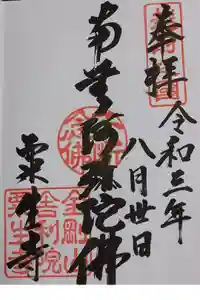 奉拝
令和三年
八月丗日
南無阿弥陀佛
粟生寺